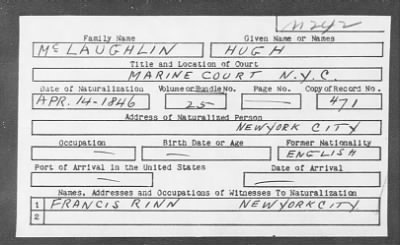 M242
Family Name Given Name or Names
McLAUGHLIN HUGH
Title and Location of Court
MARINE COURT N.Y.C.
Date of Naturalization Volume or Bundle No. Page No. Copy of Record No.
APR. 14-1846 25 — 471
Address of Naturalized Person
NEW YORK CITY
Occupation Birth Date or Age Former Nationality
— — ENGLISH
Port of Arrival in the United States Date of Arrival
— —
Names, Addresses and Occupations of Witnesses To Naturalization
1 FRANCIS RINN NEW YORK CITY
2